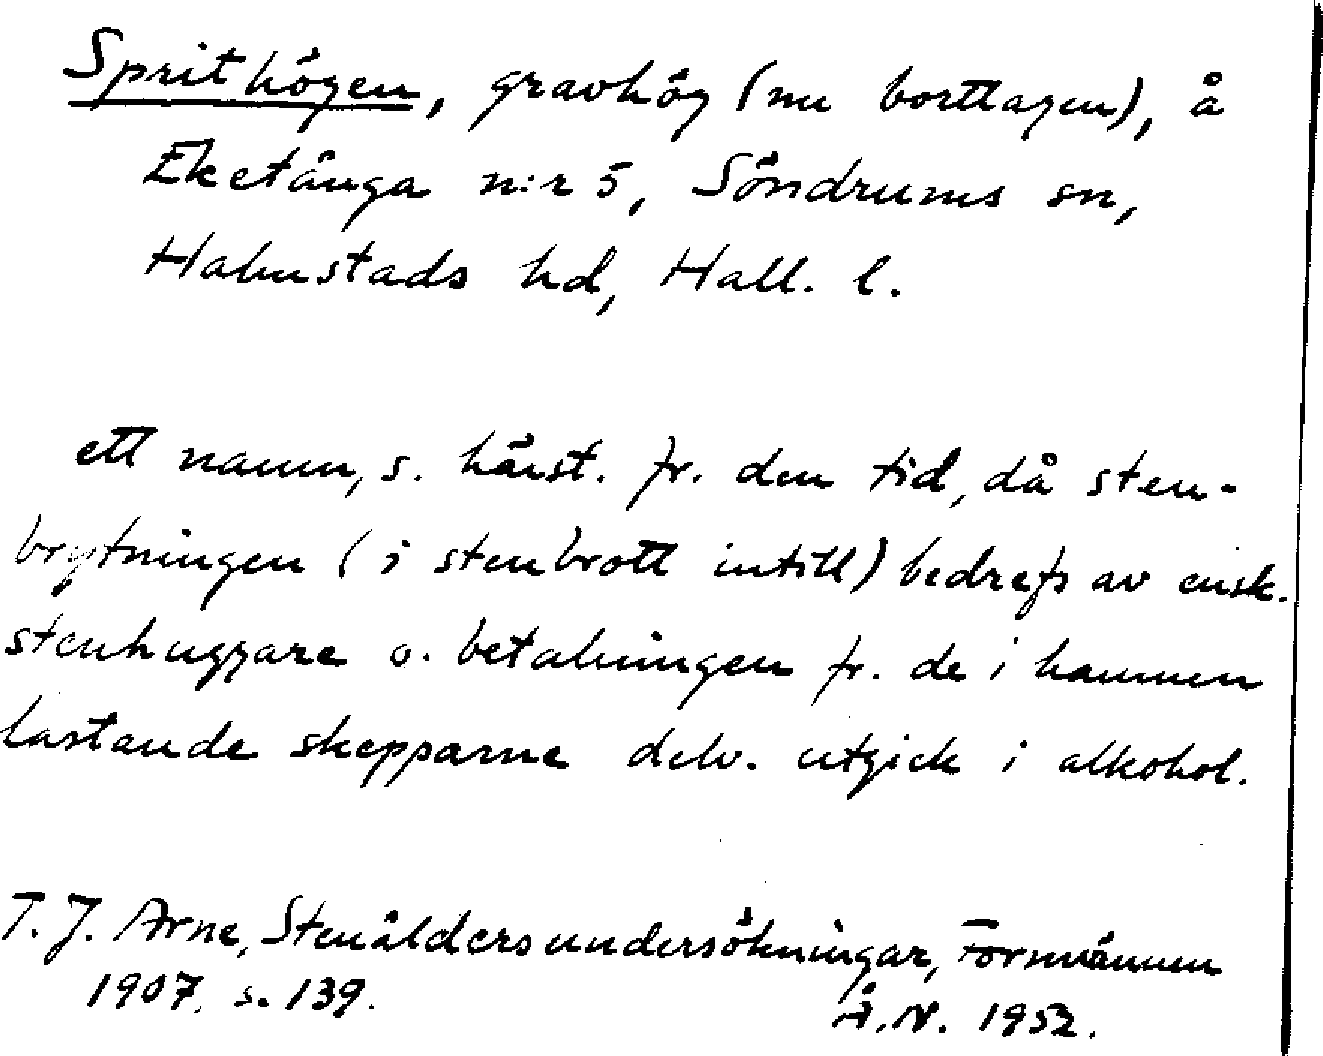 Sprithögen, gravhög (nu borttagen), å
Eketånga n:r 5, Söndrums sn,
Halmstads hd, Hall. l.
ett namn, s. härst. fr. den tid, då sten-
brytningen (i stenbrott intill) bedrefs av ensk.
stenhuggare o. betalningen fr. de i hamnen
lastande skepparne delv. utgick i alkohol.
T. J. Arne, Stenåldersundersökningar, Fornvännen
1907, s. 139.
Å. N. 1952.